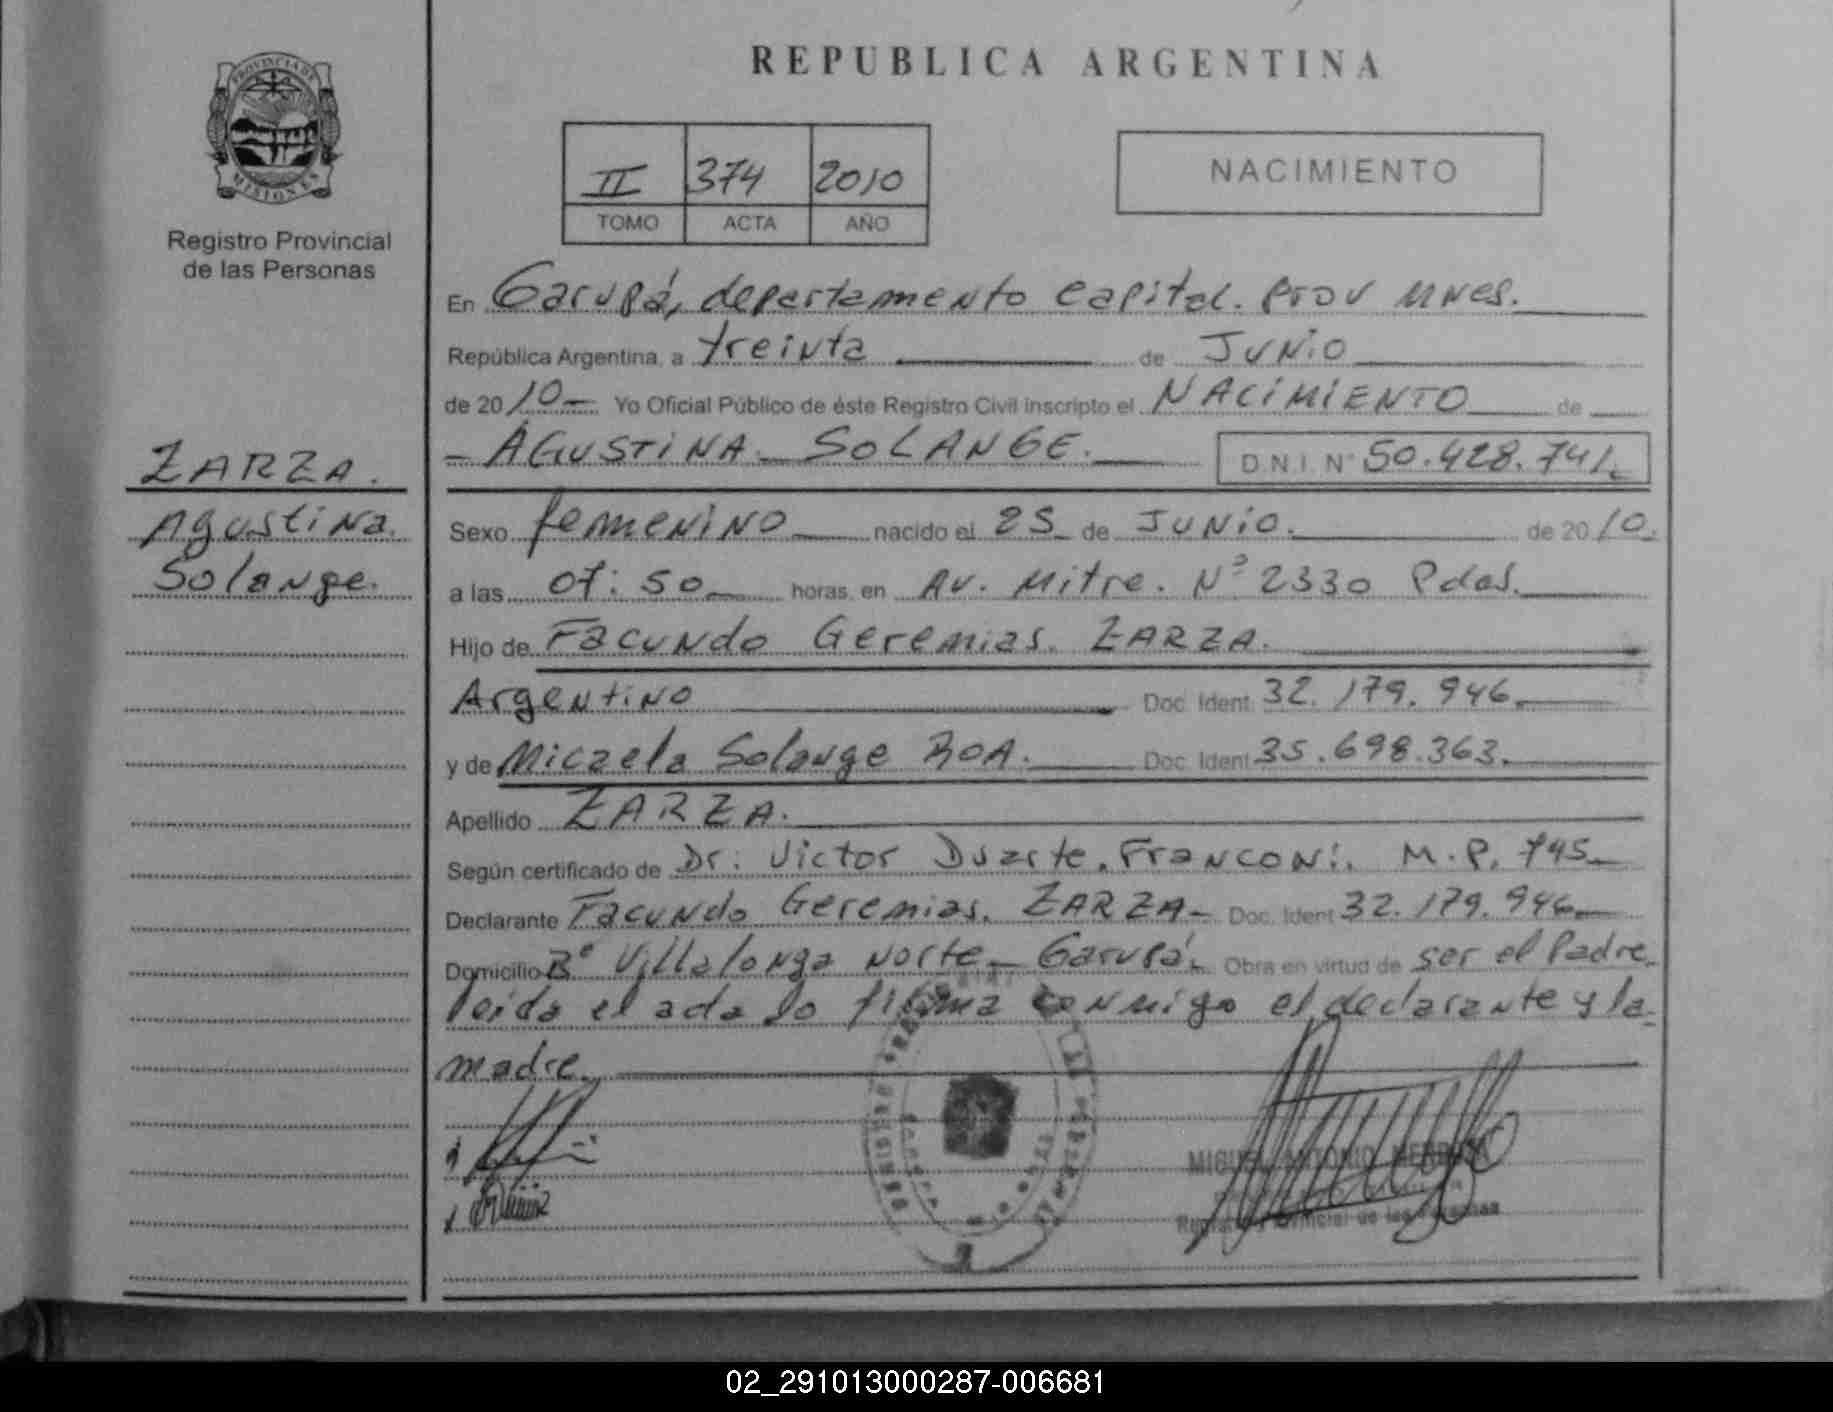 REPUBLICA ARGENTINA
PROVINCIA DE
MISIONES
Registro Provincial
de las Personas
II 374 2010
TOMO ACTA AÑO
NACIMIENTO
ZARZA.
Agustina.
Solange.
En Garupá, departamento Capital. Prov Mnes.
República Argentina, a treinta de JUNIO
de 2010- Yo Oficial Público de éste Registro Civil inscripto el NACIMIENTO de
- AGUSTINA. SOLANGE. D.N.I. Nº 50.428.741.
Sexo femenino nacido el 25 de JUNIO. de 2010.
a las 07:50 horas, en Av. Mitre. Nº 2330 Pdas.
Hijo de Facundo Geremias. ZARZA.
Argentino Doc. Ident. 32.179.946.
y de Micaela Solange BOA. Doc. Ident. 35.698.363.
Apellido ZARZA.
Según certificado de Dr: Victor Duarte. Franconi. M.P. 745
Declarante Facundo Geremias. ZARZA- Doc. Ident 32.179.946
Domicilio Bº Villalonga Norte - Garupá. Obra en virtud de ser el Padre.
leida el acta lo firma conmigo el declarante y la
madre.
MIGUEL ANTONIO
Registro Provincial de las Personas
02_291013000287-006681